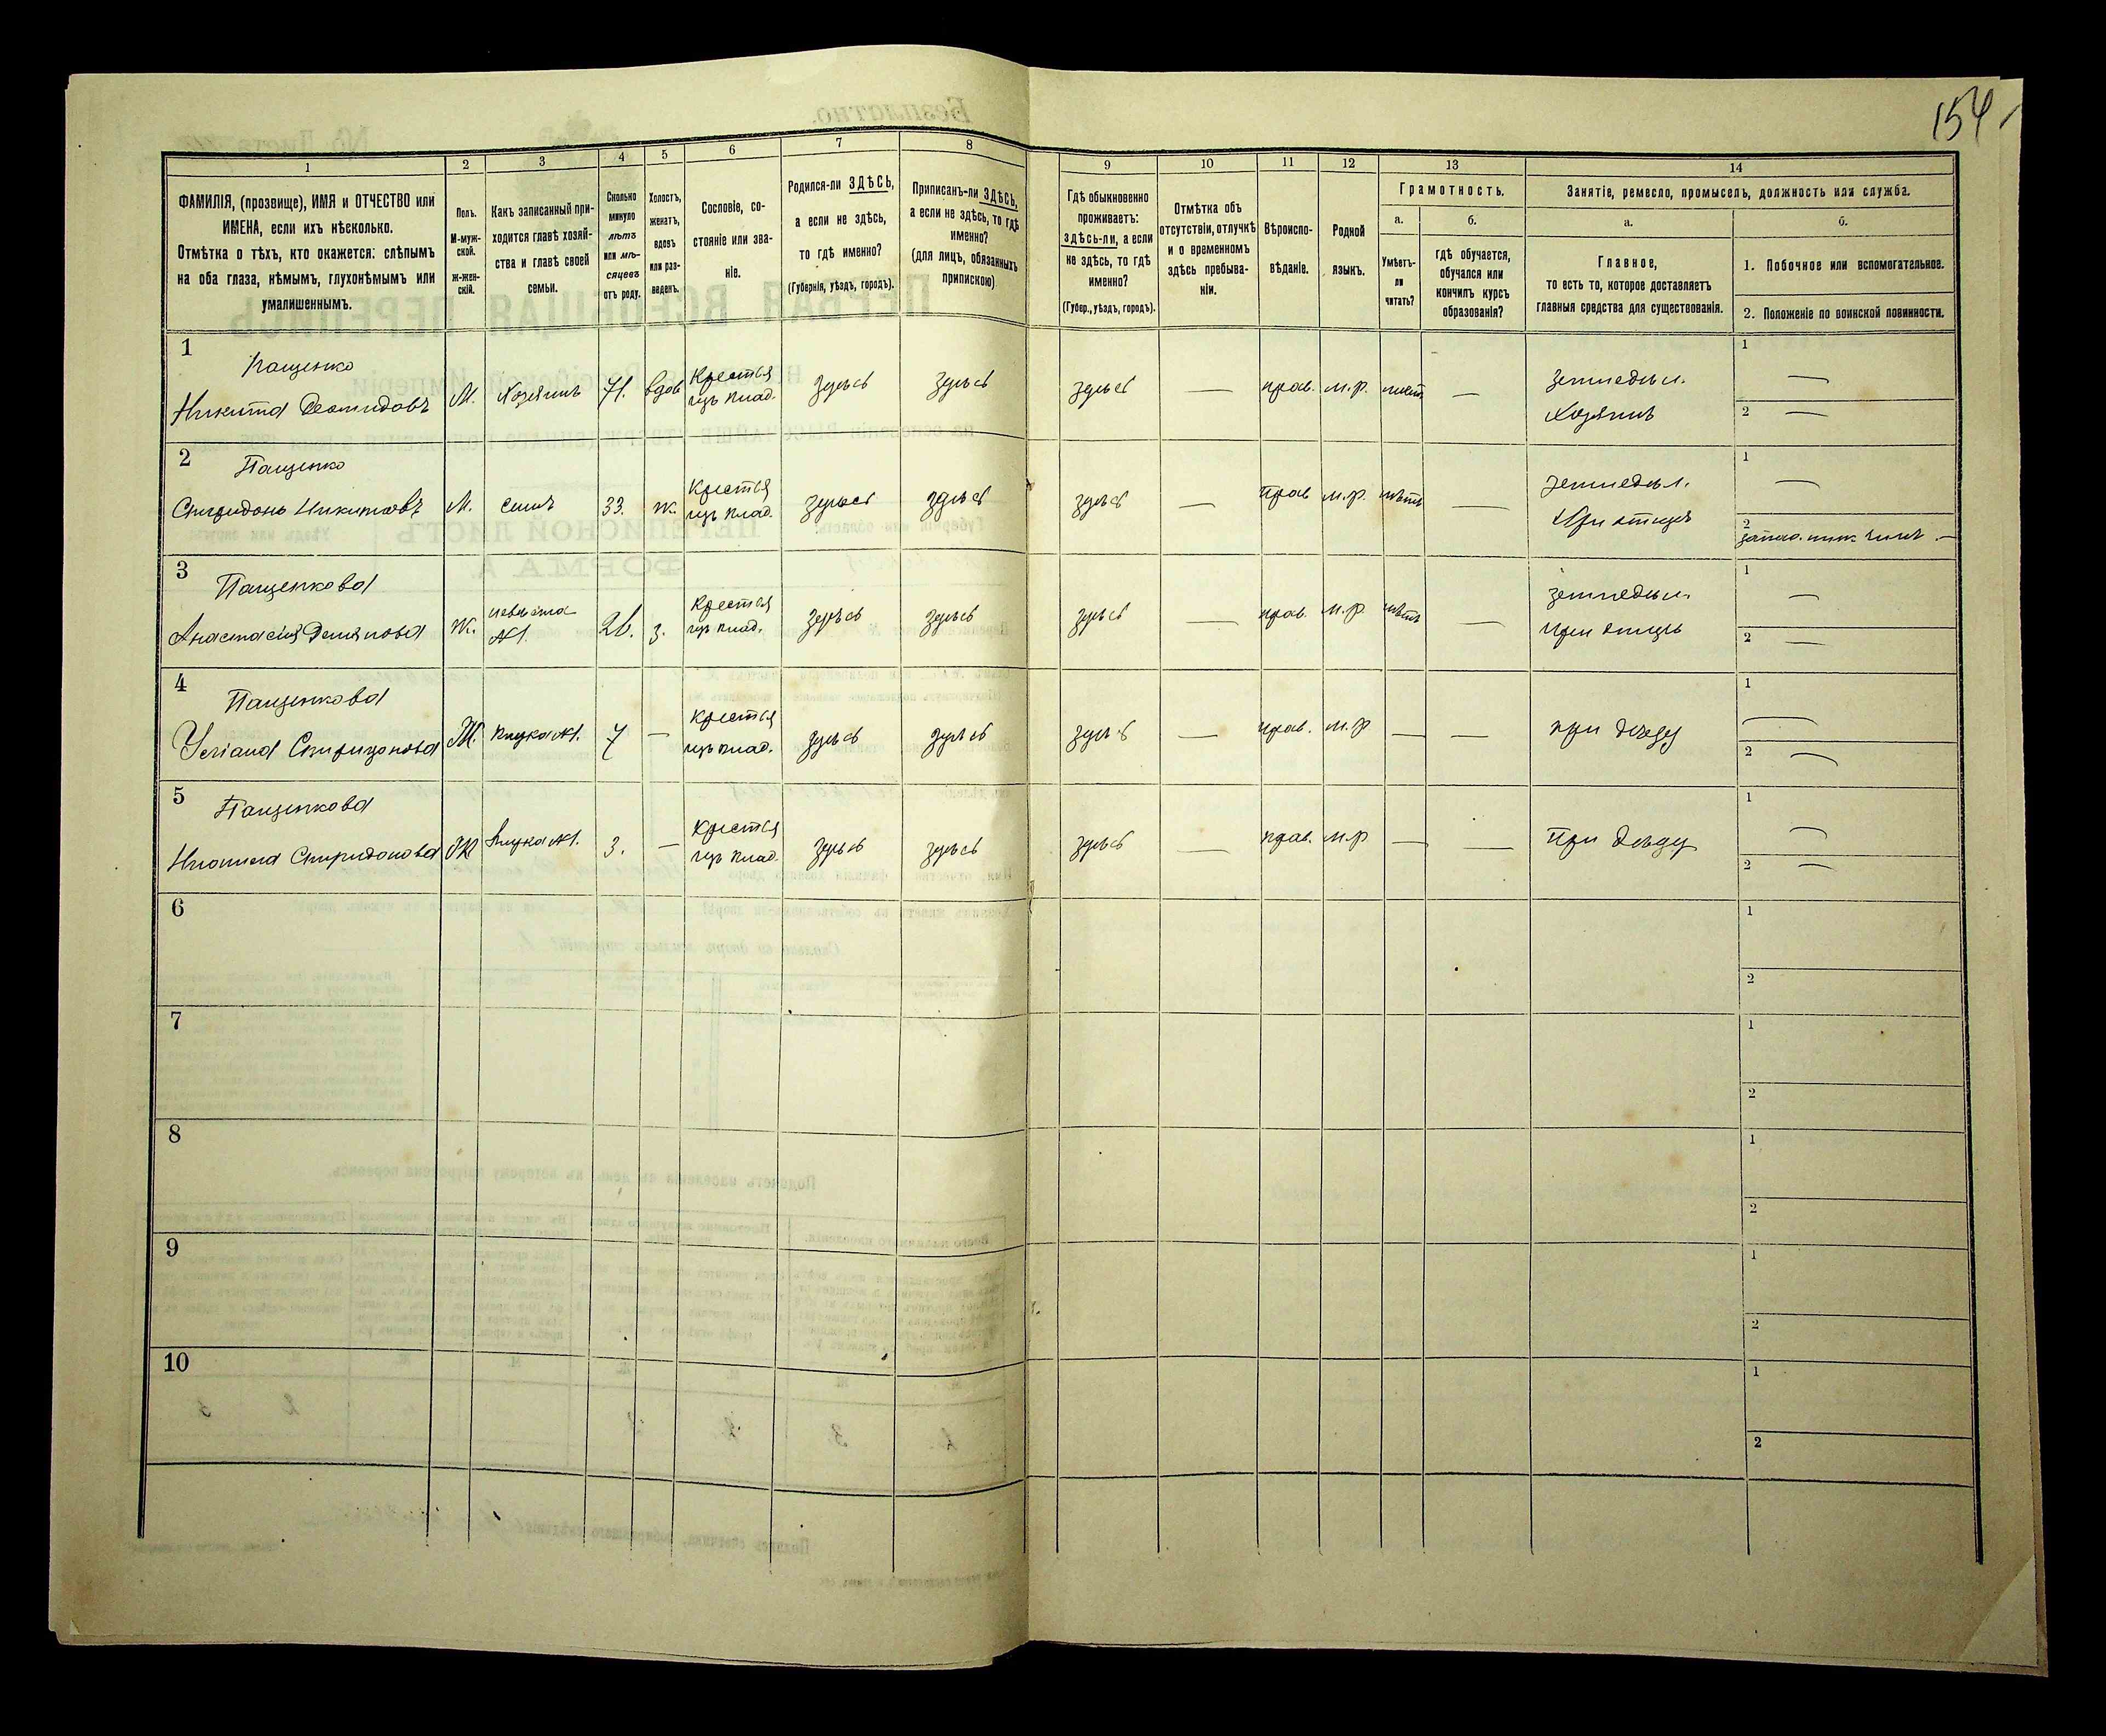 154
1 2 3 4 5 6 7 8 9 10 11 12 13 14
ФАМИЛІЯ, (прозвище), ИМЯ и ОТЧЕСТВО или
ИМЕНА, если ихъ нѣсколько.
Отмѣтка о тѣхъ, кто окажется: слѣпымъ
на оба глаза, нѣмымъ, глухонѣмымъ или
умалишеннымъ.
Полъ.
М-муж-
ской.
ж-жен-
скій.
Какъ записанный при-
ходится главѣ хозяй-
ства и главѣ своей
семьи.
Сколько
минуло
лѣтъ
или мѣ-
сяцевъ
отъ роду.
Холостъ,
женатъ,
вдовъ
или раз-
веденъ.
Сословіе, со-
стояніе или зва-
ніе.
Родился-ли ЗДѢСЬ,
а если не здѣсь,
то гдѣ именно?
(Губернія, уѣздъ, городъ).
Приписанъ-ли ЗДѢСЬ,
а если не здѣсь, то гдѣ
именно?
(для лицъ, обязанныхъ
припискою)
Гдѣ обыкновенно
проживаетъ:
здѣсь-ли, а если
не здѣсь, то гдѣ
именно?
(Губер., уѣздъ, городъ).
Отмѣтка объ
отсутствіи, отлучкѣ
и о временномъ
здѣсь пребыва-
ніи.
Вѣроиспо-
вѣданіе.
Родной
языкъ.
Грамотность.
а.
Умѣетъ-
ли
читать?
б.
гдѣ обучается,
обучался или
кончилъ курсъ
образованія?
Занятіе, ремесло, промыселъ, должность или служба.
а.
Главное,
то есть то, которое доставляетъ
главныя средства для существованія.
б.
1. Побочное или вспомогательное.
2. Положеніе по воинской повинности.
1
Пащенко
Никита Демидовъ М. Хозяинъ 71. вдов Крестья изъ влад. здѣсь здѣсь здѣсь — прав. м.р. нѣтъ — земледѣл. Хозяинъ 1 — 2 —
2
Пащенко
Спиридонъ Никитовъ М. сынъ 33. ж. Крестья изъ влад. здѣсь здѣсь здѣсь — прав м.р. нѣтъ — земледѣл. При отцѣ 1 — 2
3
Пащенкова
Анастасія Демянова Ж. невѣстка №1. 26. з. Крестья изъ влад. здѣсь здѣсь здѣсь — прав. м.р. нѣтъ — земледѣл. при отцѣ 1 — 2 —
4
Пащенкова
Уліана Спиридонова Ж. внука №1. 7 — Крестья изъ влад. здѣсь здѣсь здѣсь — прав. м.р — — при дѣду 1 — 2 —
5
Пащенкова
Спиридонова Ж внука №1. 3. — Крестья изъ влад. здѣсь здѣсь здѣсь — прав. м.р — — При дѣду 1 — 2 —
6 1 2
7 1 2
8 1 2
9 1 2
10 1 2